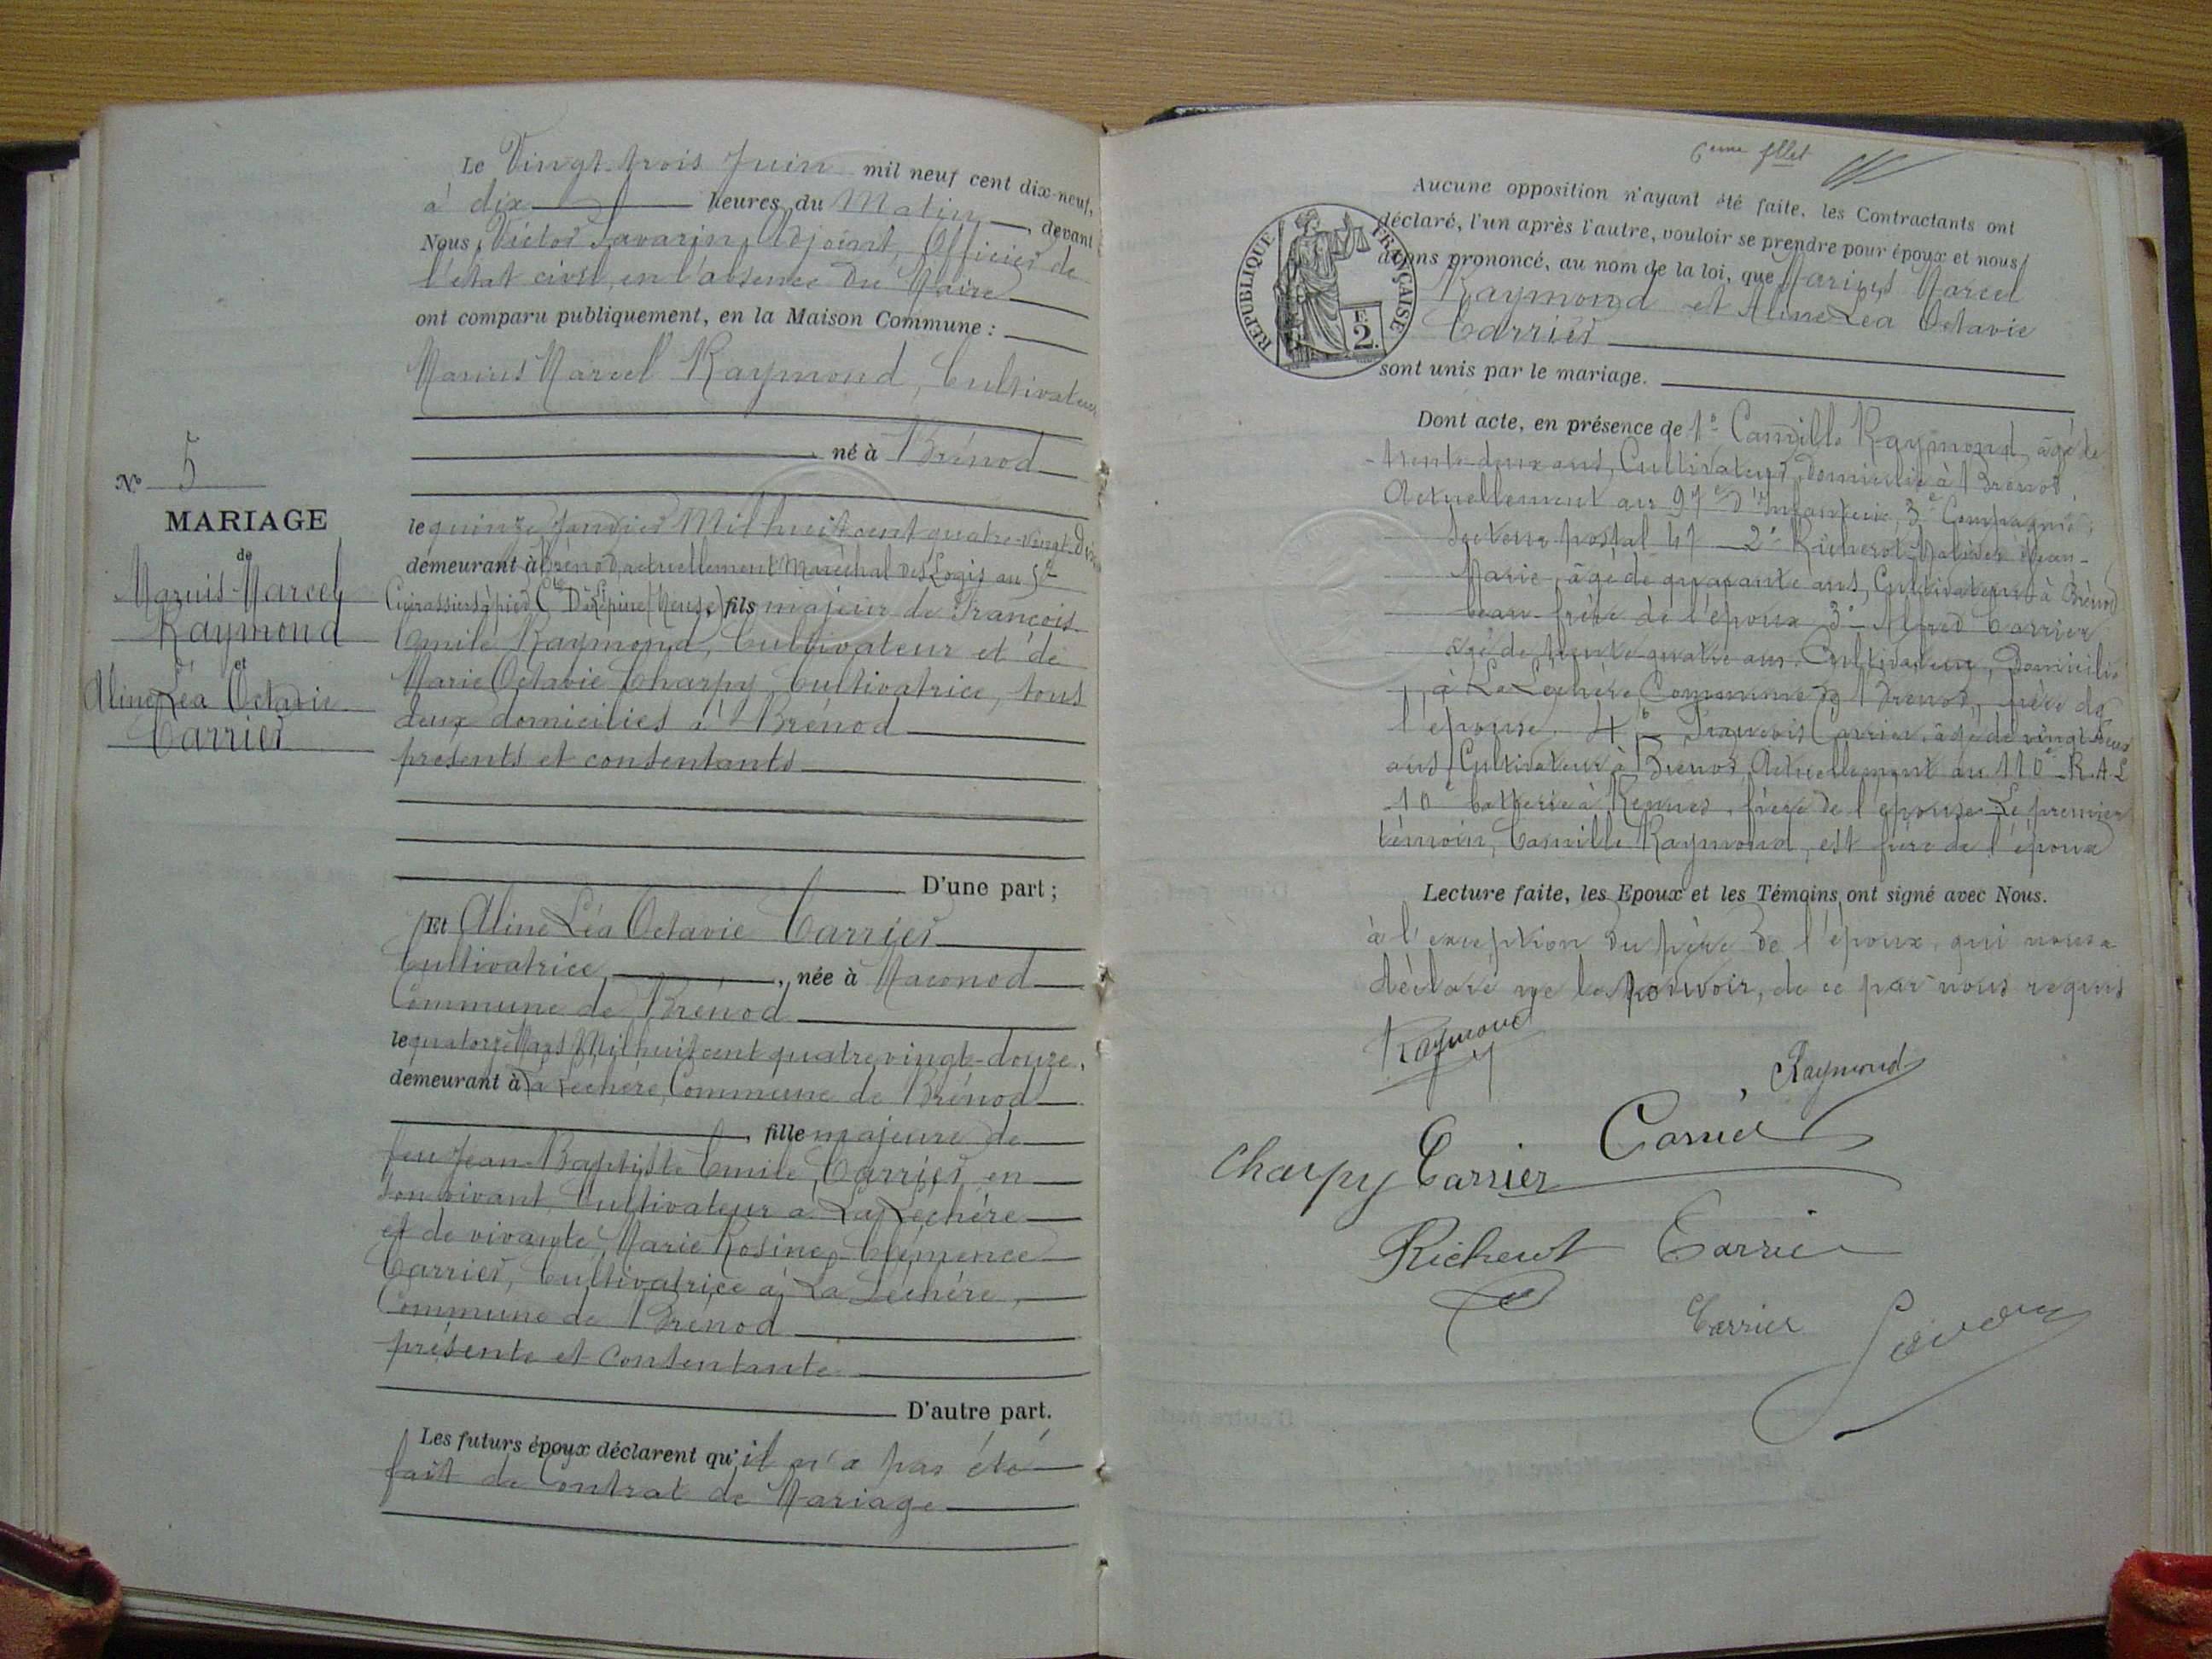 Le Vingt-trois Juin mil neuf cent dix-neuf,
à dix heures du Matin, devant
Nous, Victor Savarin, Adjoint, Officier de
l'état civil, en l'absence du Maire
ont comparu publiquement, en la Maison Commune :
Marius Marcel Raymond, Cultivateur
né à Brénod
le quinze Janvier Mil huit cent quatre-vingt-dix
demeurant à Brénod, actuellement Maréchal des Logis au 5e
Cuirassiers à pied, fils majeur de François
Emile Raymond, Cultivateur et de
Marie Octavie Charpy, Cultivatrice, tous
deux domiciliés à Brénod
présents et consentants
D'une part ;
Et Aline Léa Octavie Carrier
Cultivatrice, née à Maconod
Commune de Brénod
le quatorze Mars Mil huit cent quatre vingt-douze,
demeurant à La Léchère, Commune de Brénod
, fille majeure de
feu Jean-Baptiste Emile, Carrier, en
son vivant, Cultivateur à La Léchère
et de vivante, Marie Rosine, Clémence
Carrier, Cultivatrice à La Léchère,
Commune de Brénod
présente et Consentante
D'autre part.
Les futurs époux déclarent qu'il n'a pas été
fait de Contrat de Mariage
N° 5
MARIAGE
de
Maruis-Marcel
Raymond
et
Aline Léa Octavie
Carrier
6eme fllet
REPUBLIQUE FRANÇAISE
2.
Aucune opposition n'ayant été faite, les Contractants ont
déclaré, l'un après l'autre, vouloir se prendre pour époux et nous
avons prononcé, au nom de la loi, que Marius Marcel
Raymond et Aline Léa Octavie
Carrier
sont unis par le mariage.
Dont acte, en présence de 1° Camille Raymond, âgé de
trente-deux ans, Cultivateur, Domicilié à Brénod,
Actuellement au 97e d'Infanterie, 3e Compagnie,
Secteur postal 47 2° Richerot Jean-
Marie, âgé de quarante ans, Cultivateur à Brénod
beau-frère de l'époux 3° Alfred Carrier
âgé de trente quatre ans, Cultivateur, Domicilié
à La Léchère, Commune de Brénod, frère de
l'épouse, 4° François Carrier, âgé de vingt-deux
ans, Cultivateur à Brénod, Actuellement au 110e R.A.L
10e batterie à Rennes, frère de l'épouse. Le premier
témoin, Camille Raymond, est frère de l'époux
Lecture faite, les Epoux et les Témoins ont signé avec Nous.
à l'exception du père de l'époux, qui nous a
déclaré ne le pouvoir, de ce par nous requis
Raymond
Raymond
Carrier
Charpy Carrier
Richerot Carrier
Carrier